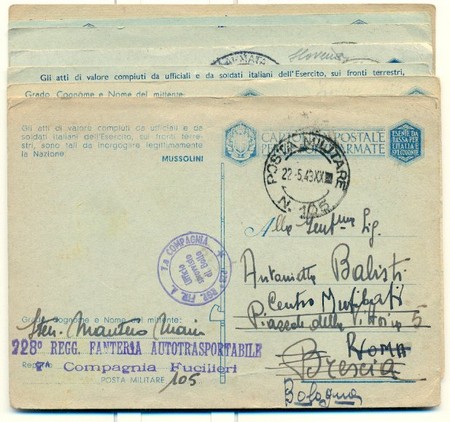 ARMATA
Slovenia
Gli atti di valore compiuti da ufficiali e da soldati italiani dell'Esercito, sui fronti terrestri,
Grado, Cognome e Nome del mittente
Gli atti di valore compiuti da ufficiali e da
soldati italiani dell'Esercito, sui fronti terre-
stri, sono tali da inorgogire legittimamente
la Nazione.
MUSSOLINI
CARTOLINA POSTALE
PER LE FORZE ARMATE
ESENTE DA
TASSA PER
L'ITALIA E
POSTA MILITARE
22-5.43 XXI
N. 105
7.A COMPAGNIA
Alla
Sig.
Antonietta Balisti
Centro Mutilati
Piazza della Vittoria 5
Roma
Brescia
Bologna
Grado, Cognome e Nome del mittente:
228° REGG. FANTERIA AUTOTRASPORTABILE
7ª Compagnia Fucilieri
POSTA MILITARE 105